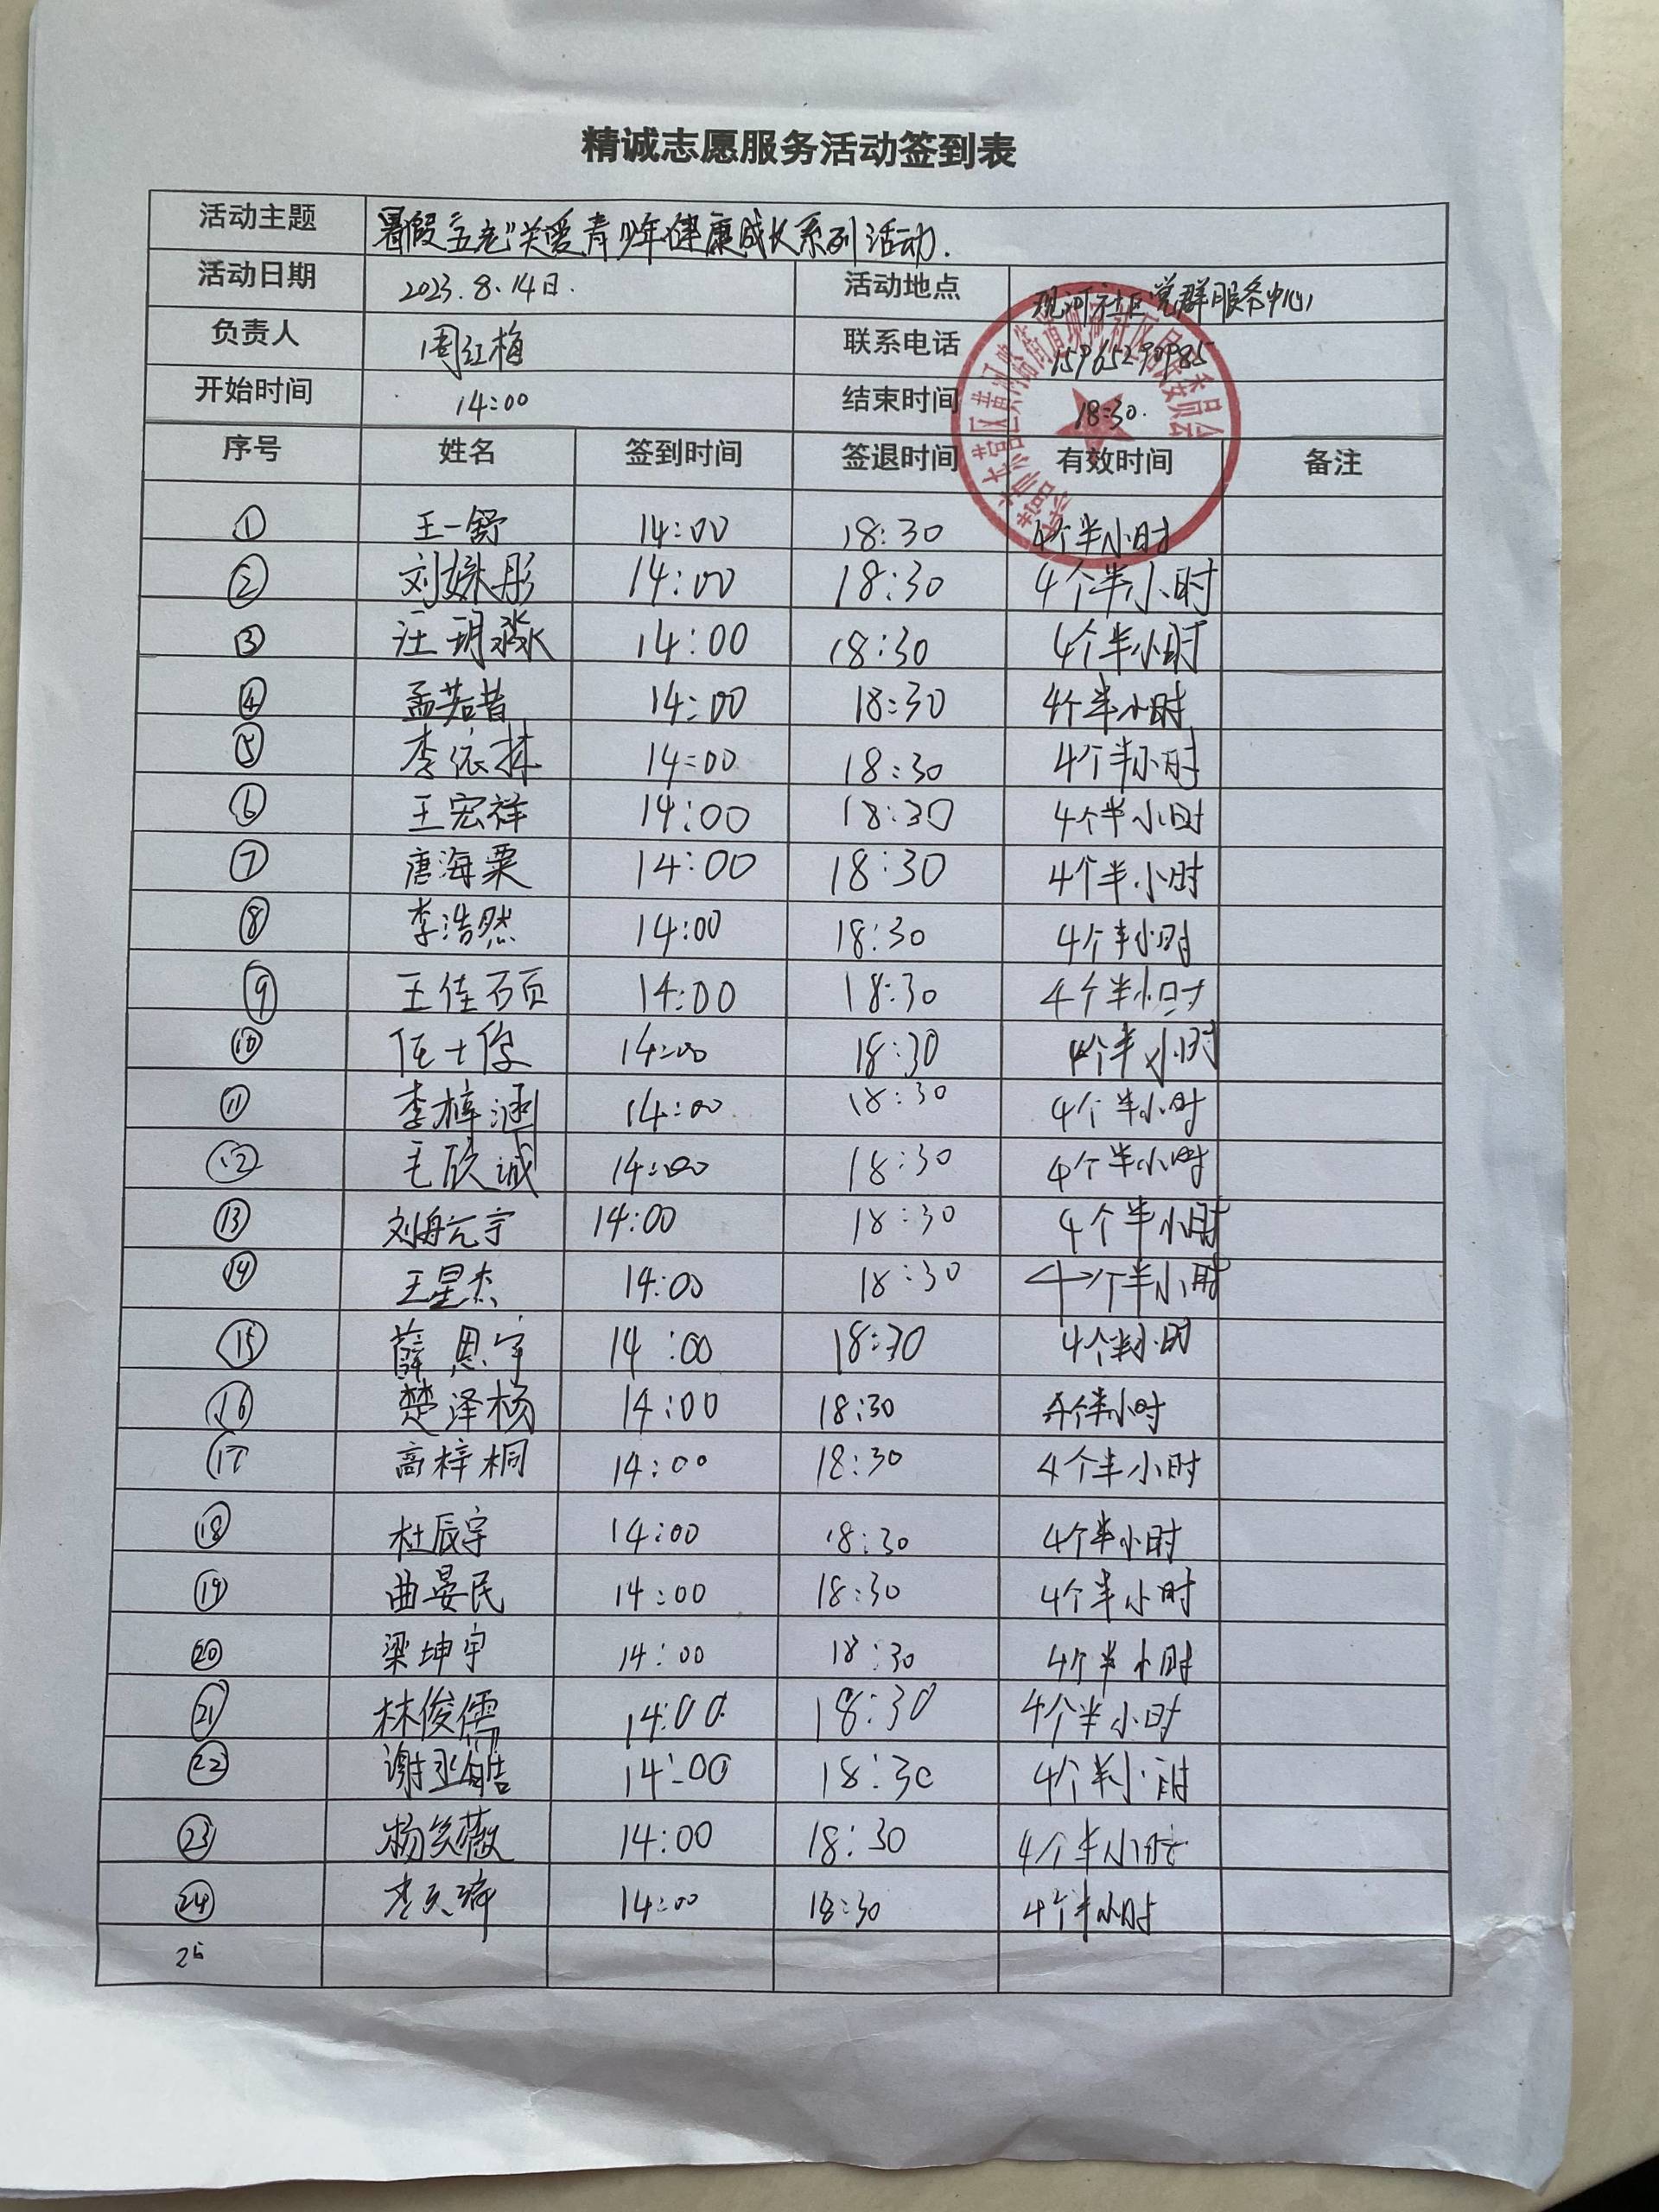 精诚志愿服务活动签到表
活动主题 暑假"五彩"关爱青少年健康成长系列活动.
活动日期 2023.8.14日. 活动地点 现河社区党群服务中心
负责人 周红梅 联系电话
开始时间 14:00 结束时间 18:30.
序号 姓名 签到时间 签退时间 有效时间 备注
① 王一舒 14:00 18:30 4个半小时
② 刘姝彤 14:00 18:30 4个半小时
③ 汪玥淼 14:00 18:30 4个半小时
④ 孟若昔 14:00 18:30 4个半小时
⑤ 李依林 14:00 18:30 4个半小时
⑥ 王宏祥 14:00 18:30 4个半小时
⑦ 唐海粟 14:00 18:30 4个半小时
⑧ 李浩然 14:00 18:30 4个半小时
⑨ 王佳硕 14:00 18:30 4个半小时
⑩ 任士俊 14:00 18:30 4个半小时
⑪ 李梓涵 14:00 18:30 4个半小时
⑫ 毛欣诚 14:00 18:30 4个半小时
⑬ 刘舟元宇 14:00 18:30 4个半小时
⑭ 王星杰 14:00 18:30 4个半小时
⑮ 薛恩宇 14:00 18:30 4个半小时
⑯ 楚泽杨 14:00 18:30 4个半小时
⑰ 高梓桐 14:00 18:30 4个半小时
⑱ 杜辰宇 14:00 18:30 4个半小时
⑲ 曲晏民 14:00 18:30 4个半小时
⑳ 梁坤宇 14:00 18:30 4个半小时
㉑ 林俊儒 14:00 18:30 4个半小时
㉒ 谢丞皓 14:00 18:30 4个半小时
㉓ 杨笑薇 14:00 18:30 4个半小时
㉔ 14:00 18:30 4个半小时
25